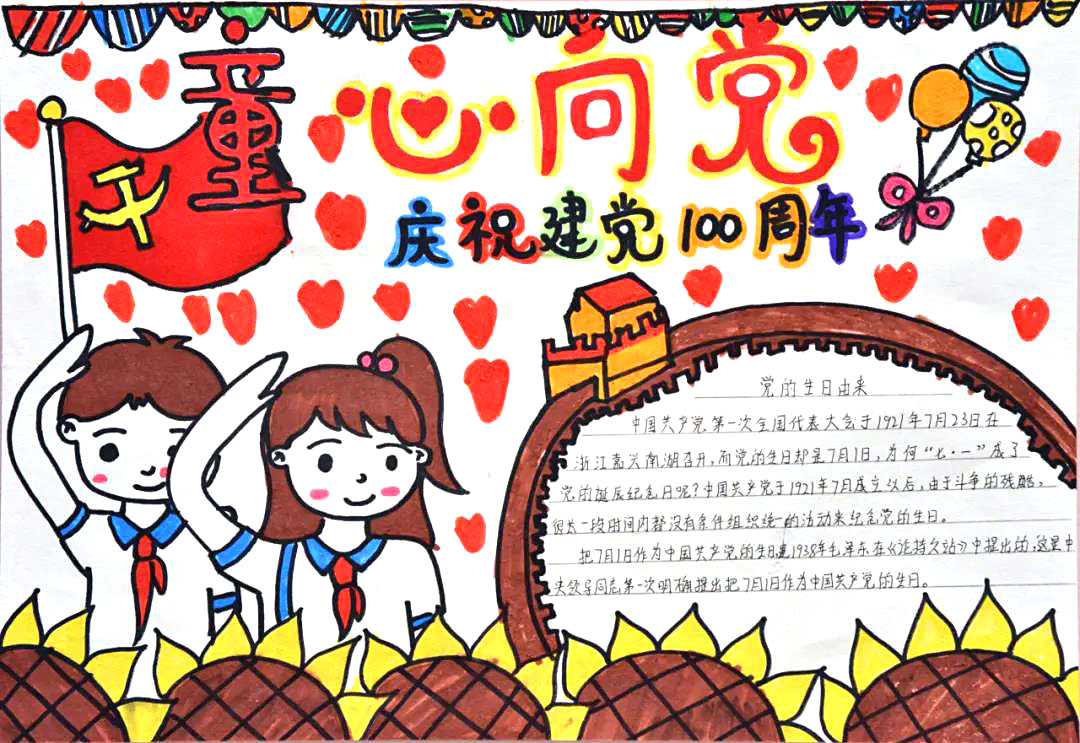 童心向党
庆祝建党100周年
党的生日由来
中国共产党第一次全国代表大会于1921年7月23日在
浙江嘉兴南湖召开,而党的生日却是7月1日,为何“七·一”成了
党的诞辰纪念日呢?中国共产党于1921年7月成立以后,由于斗争的残酷,
很长一段时间内都没有条件组织统一的活动来纪念党的生日。
把7月1日作为中国共产党的生日是1938年毛泽东在《论持久站》中提出的,这是中
央领导同志第一次明确提出把7月1日作为中国共产党的生日。